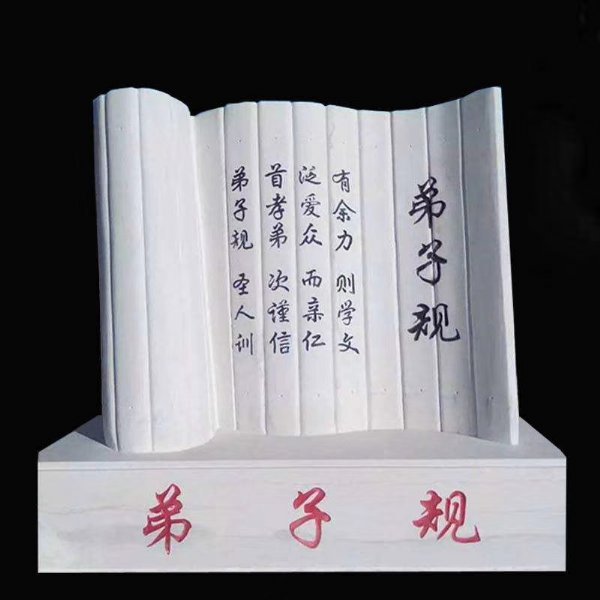 弟子规
弟子规 圣人训
首孝弟 次谨信
泛爱众 而亲仁
有余力 则学文
弟子规